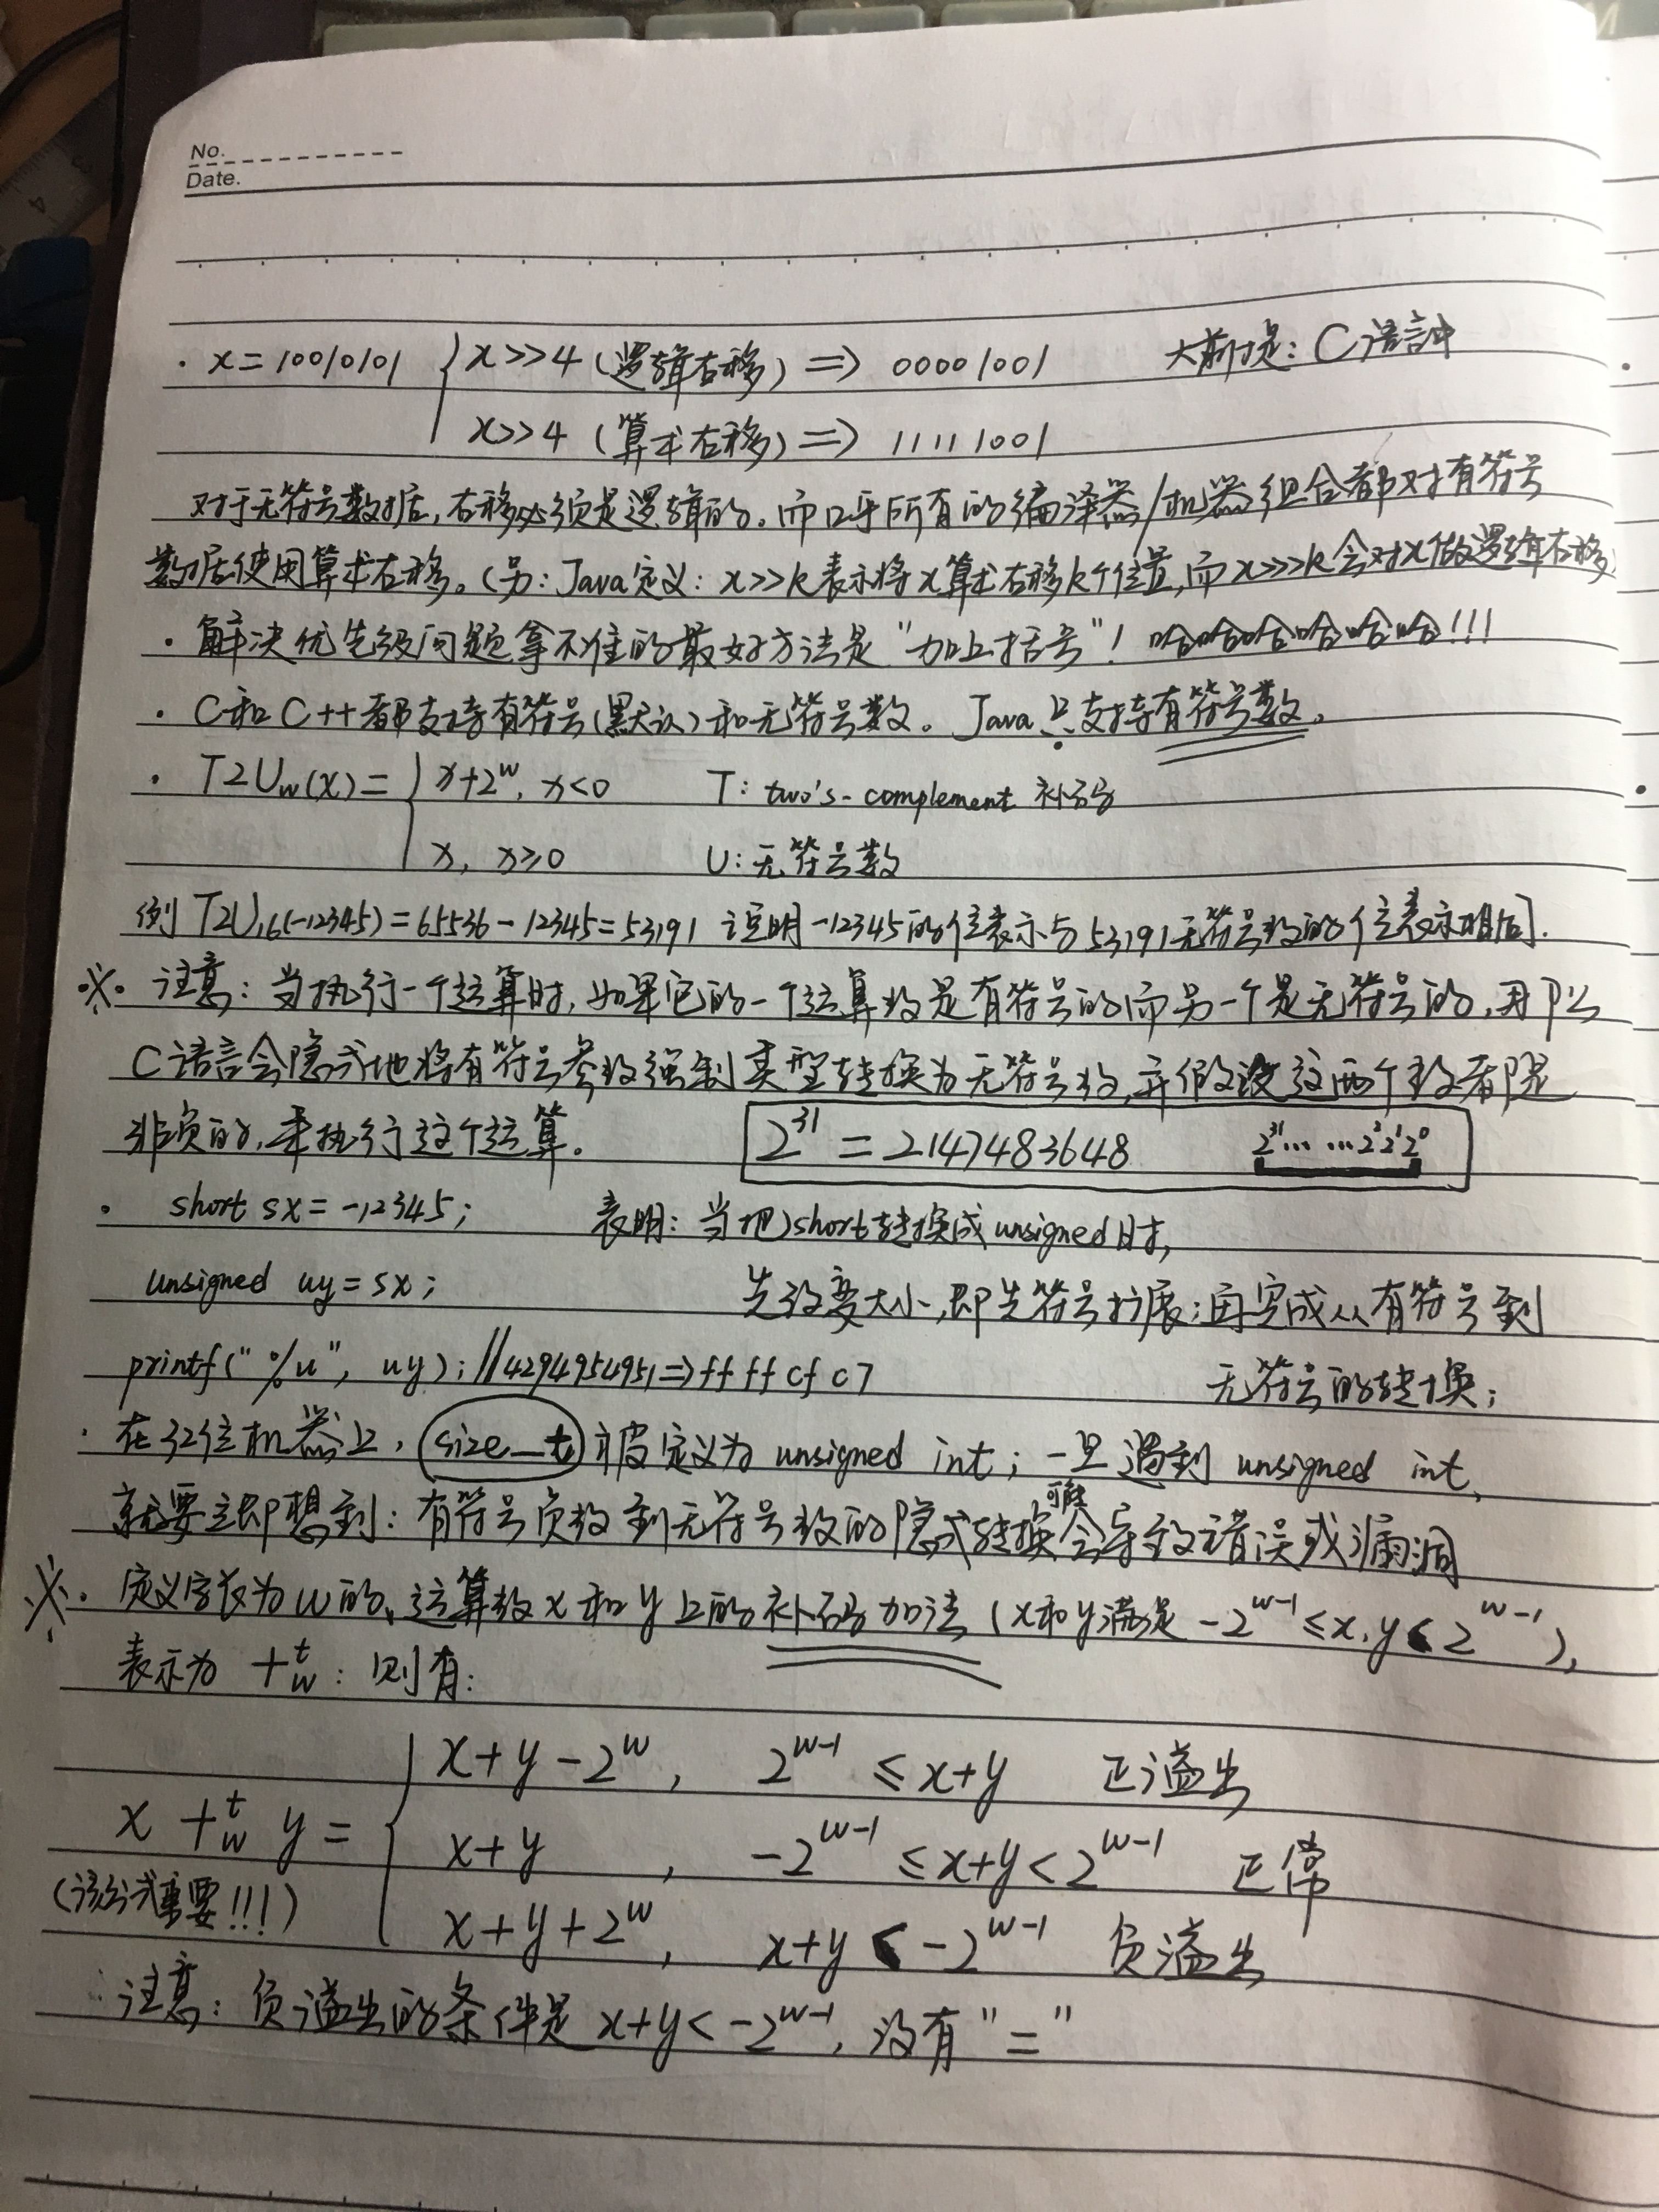 No.
Date.
· x=10010101 { x>>4 (逻辑右移) => 00001001 大前提: C语言中
x>>4 (算术右移) => 11111001
对于无符号数据,右移必须是逻辑的。而几乎所有的编译器/机器组合都对有符号
数据使用算术右移。(另: Java定义: x>>k表示将x算术右移k个位置,而x>>>k会对x做逻辑右移)
· 解决优先级问题拿不准的最好方法是"加上括号"! 哈哈哈哈哈哈!!!
· C和C++都支持有符号(默认)和无符号数。Java只支持有符号数。
· T2Uw(x)= { x+2^w, x<0 T: two's-complement 补码
x, x≥0 U: 无符号数
例 T2U16(-12345)=65536-12345=53191 证明-12345的位表示与53191无符号数的位表示相同.
※· 注意: 当执行一个运算时,如果它的一个运算数是有符号的而另一个是无符号的,那么
C语言会隐式地将有符号参数强制类型转换为无符号数,并假设这两个数都是
非负的,来执行这个运算。 2^31 = 2147483648 2^31... ...2^2 2^1 2^0
· short sx = -12345; 表明: 当把short转换成unsigned时,
unsigned uy = sx; 先改变大小,即先符号扩展;再完成从有符号到
printf("%u", uy); //4294954951=>ff ff cf c7 无符号的转换;
· 在32位机器上, size_t 被定义为 unsigned int; 一旦遇到 unsigned int,
就要立即想到: 有符号负数到无符号数的隐式转换可能会导致错误或漏洞
※· 定义字长为w的、运算数x和y上的补码加法 (x和y满足 -2^w-1 ≤x,y< 2^w-1),
表示为 +^t_w : 则有:
x+y-2^w, 2^w-1 ≤ x+y 正溢出
x +^t_w y = { x+y , -2^w-1 ≤x+y<2^w-1 正常
(该公式重要!!!)
x+y+2^w, x+y < -2^w-1 负溢出
注意: 负溢出的条件是 x+y< -2^w-1, 没有"="